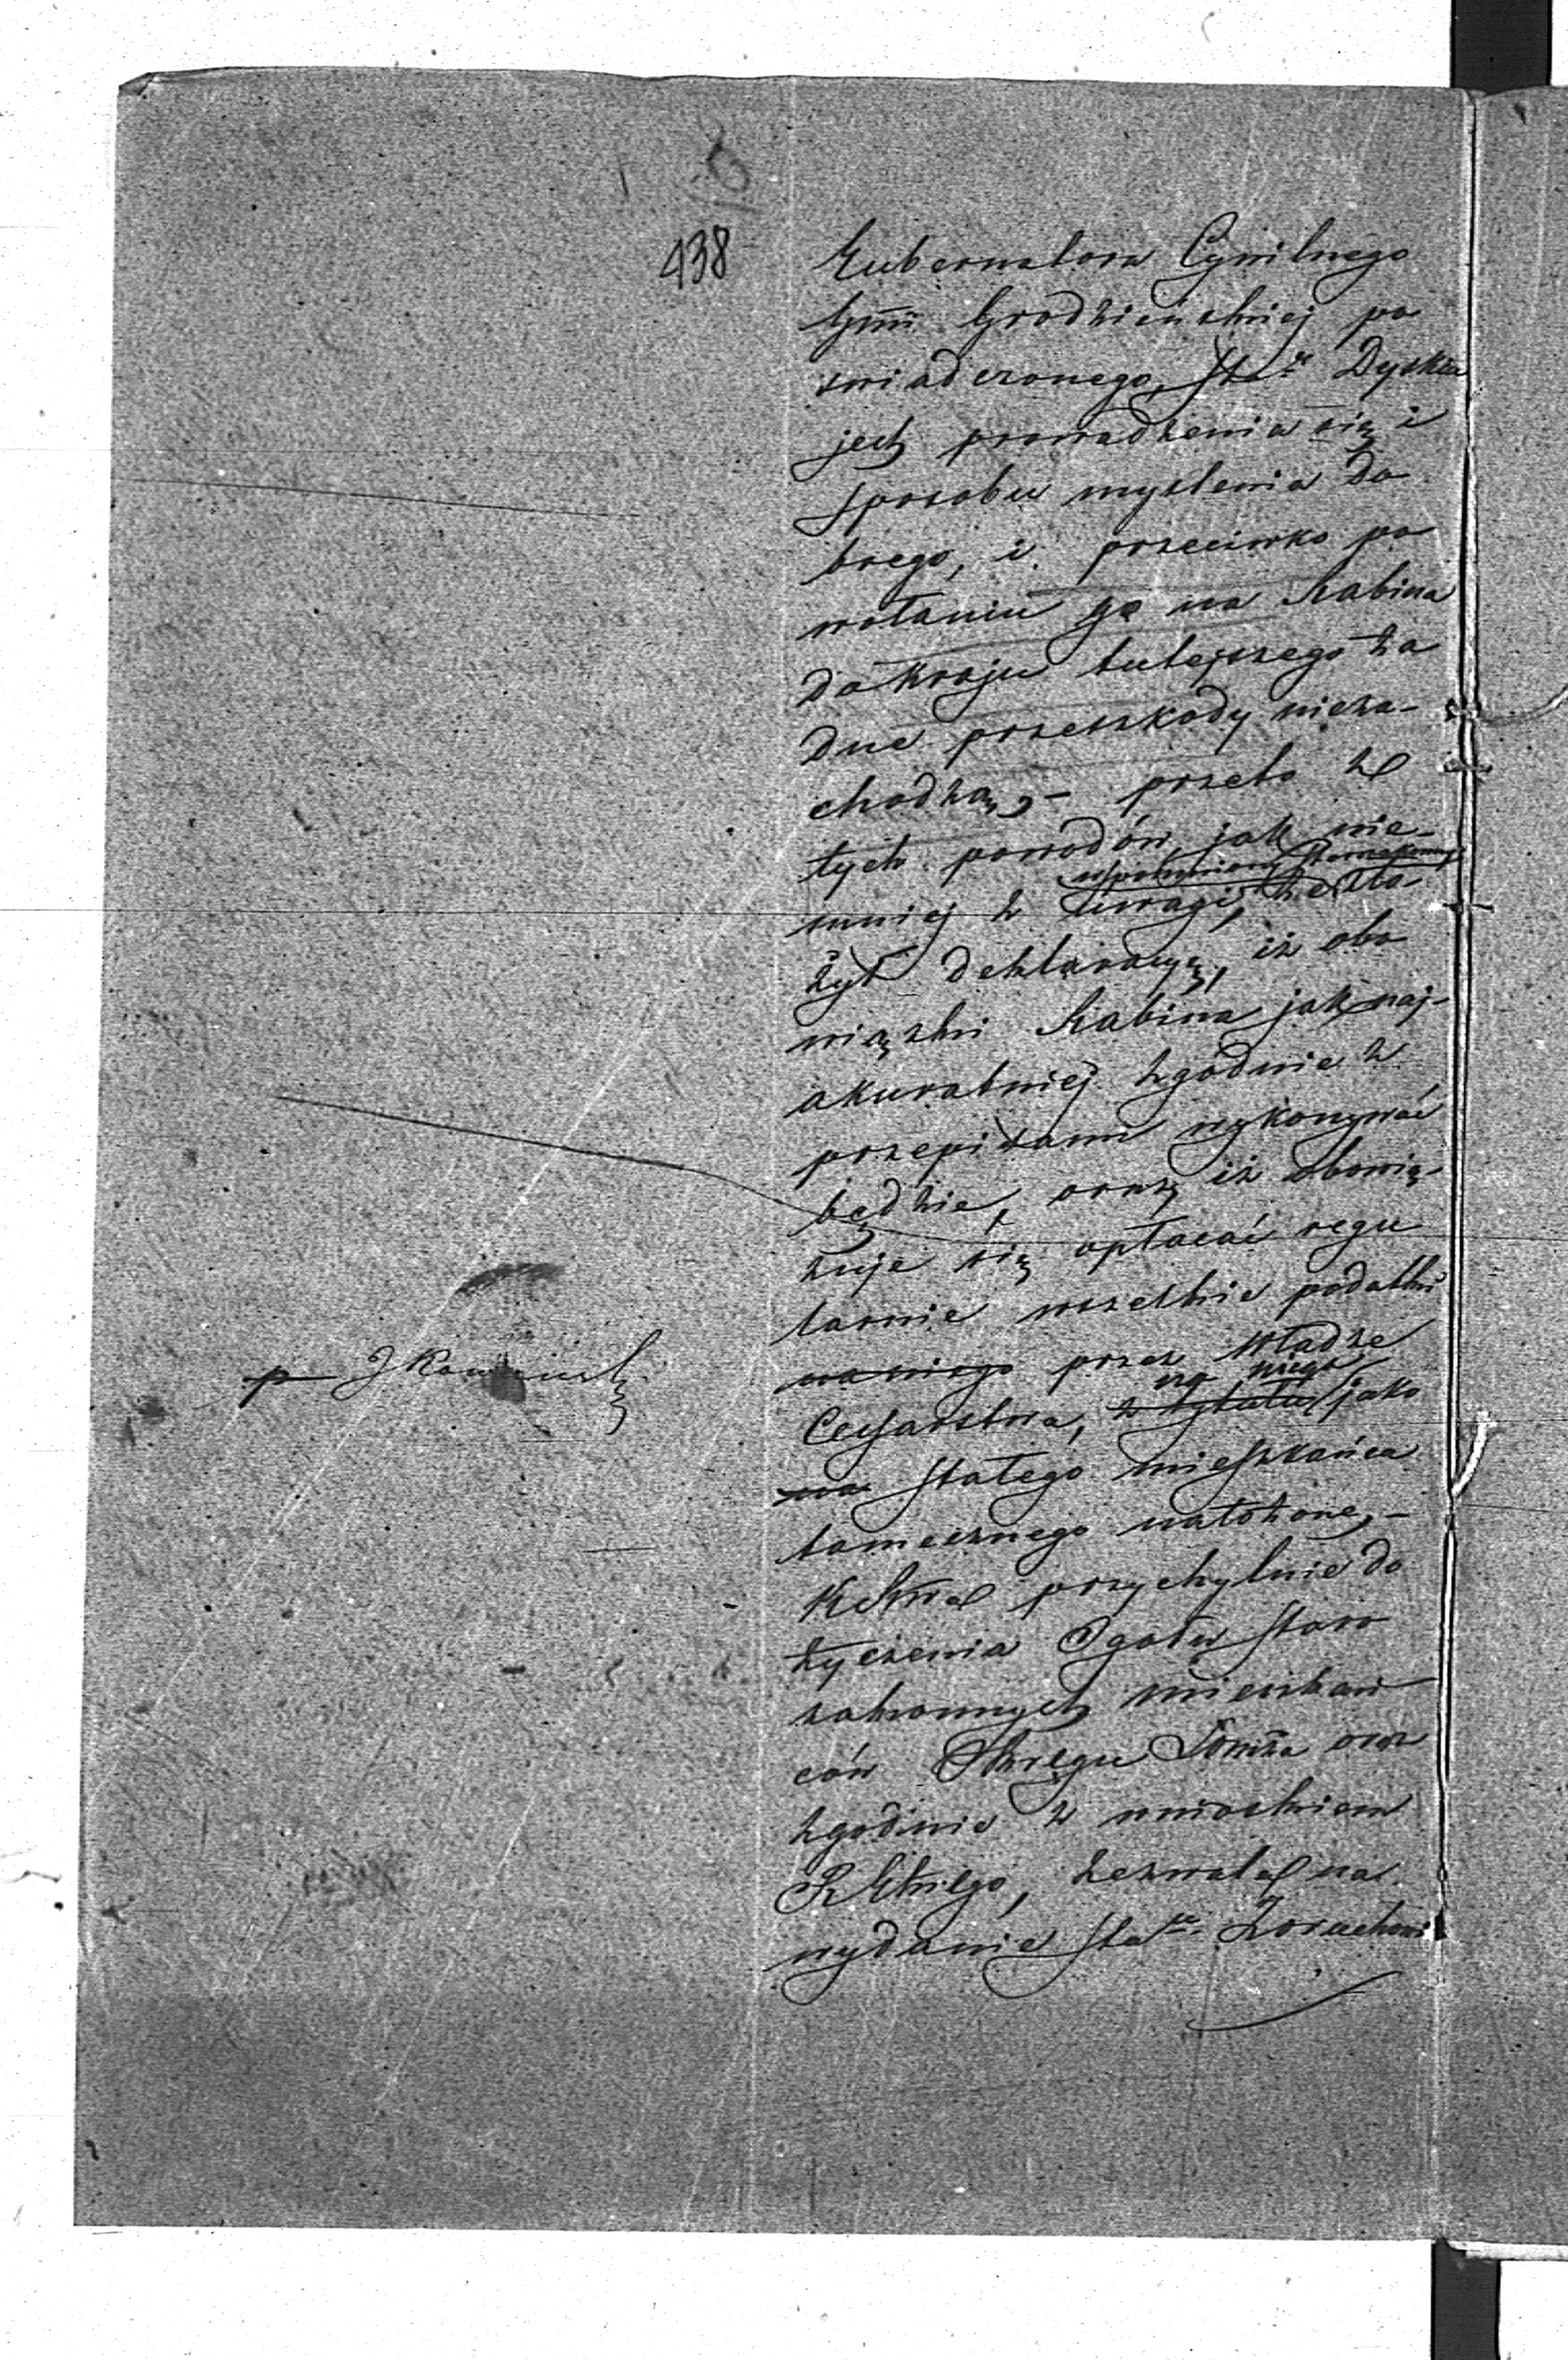 438
Gubernatora Cywilnego
Gnii Grodzieńskiej po
swiadczonego, Sta
jest prowadzenia się i
sposobu myslenia do
brego, i przeciwko po
wołaniu go na Rabina
do kraju tutejszego ża
dne przeszkody nieza-
chodzą, – przeto z
tych powodów, jak nie-
wspomniony
mniej z uwagi, że zło-
żył deklaracyę, iż obo
wiązki Rabina jak naj-
akuratniej zgodnie z
przepisami wykonywać
będzie, oraz iż obowią-
zuje się opłacać regu
larnie wszelkie podatki
przez Władze
na niego
Cesarstwa, z tytułu jako
na stałego mieszkańca
tamecznego nałożone, –
przychylnie do
życzenia Ogółu staro
zakonnych mieszkań
ców Okręgu Łomża oraz
zgodnie z wnioskiem
zezwala na
wydanie
p J